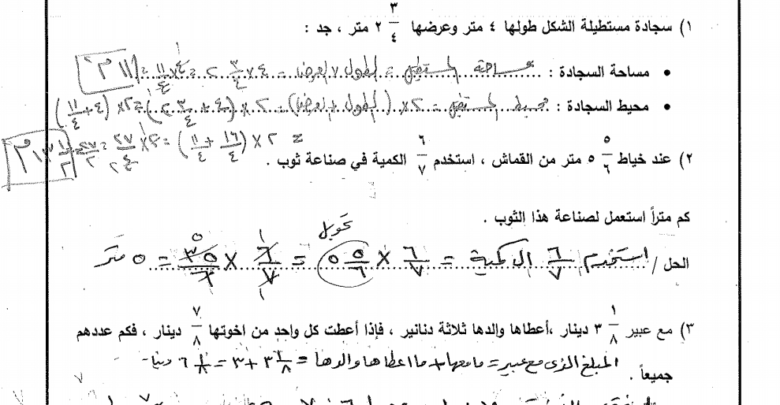 ١) سجادة مستطيلة الشكل طولها ٤ متر وعرضها ٢ ٣/٤ متر ، جد :
• مساحة السجادة : مساحة المستطيل = الطول × العرض = ٤ × ٢ ٣/٤ = ٤ × ١١/٤ = ١١ م٢
• محيط السجادة : محيط المستطيل = ٢ × (الطول + العرض) = ٢ × (٤ + ٢ ٣/٤) = ٢ × (٤ + ١١/٤)
= ٢ × (١٦/٤ + ١١/٤) = ٢ × ٢٧/٤ = ٢٧/٢ = ١٣ ١/٢ م
٢) عند خياط ٥ ٥/٦ متر من القماش ، استخدم ٦/٧ الكمية في صناعة ثوب .
كم متراً استعمل لصناعة هذا الثوب .
تحويل
الحل / استخدم ٦/٧ الكمية = ٦/٧ × ٥ ٥/٦ = ٦/٧ × ٣٥/٦ = ٥ متر
٣) مع عبير ٣ ١/٨ دينار ،أعطاها والدها ثلاثة دنانير ، فإذا أعطت كل واحد من اخوتها ٧/٨ دينار ، فكم عددهم
جميعاً .
المبلغ الذي مع عبير = مامعها + ما اعطاها والدها = ٣ ١/٨ + ٣ = ٦ ١/٨ دينار